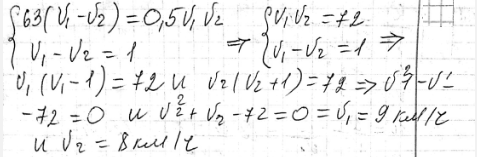 {63(v₁-v₂)=0,5v₁v₂
{v₁-v₂=1 ⇒ {v₁v₂=72
{v₁-v₂=1 ⇒
v₁(v₁-1)=72 и v₂(v₂+1)=72 ⇒ v₁²-v₁-
-72=0 и v₂²+v₂-72=0 = v₁=9 км/ч
и v₂=8 км/ч